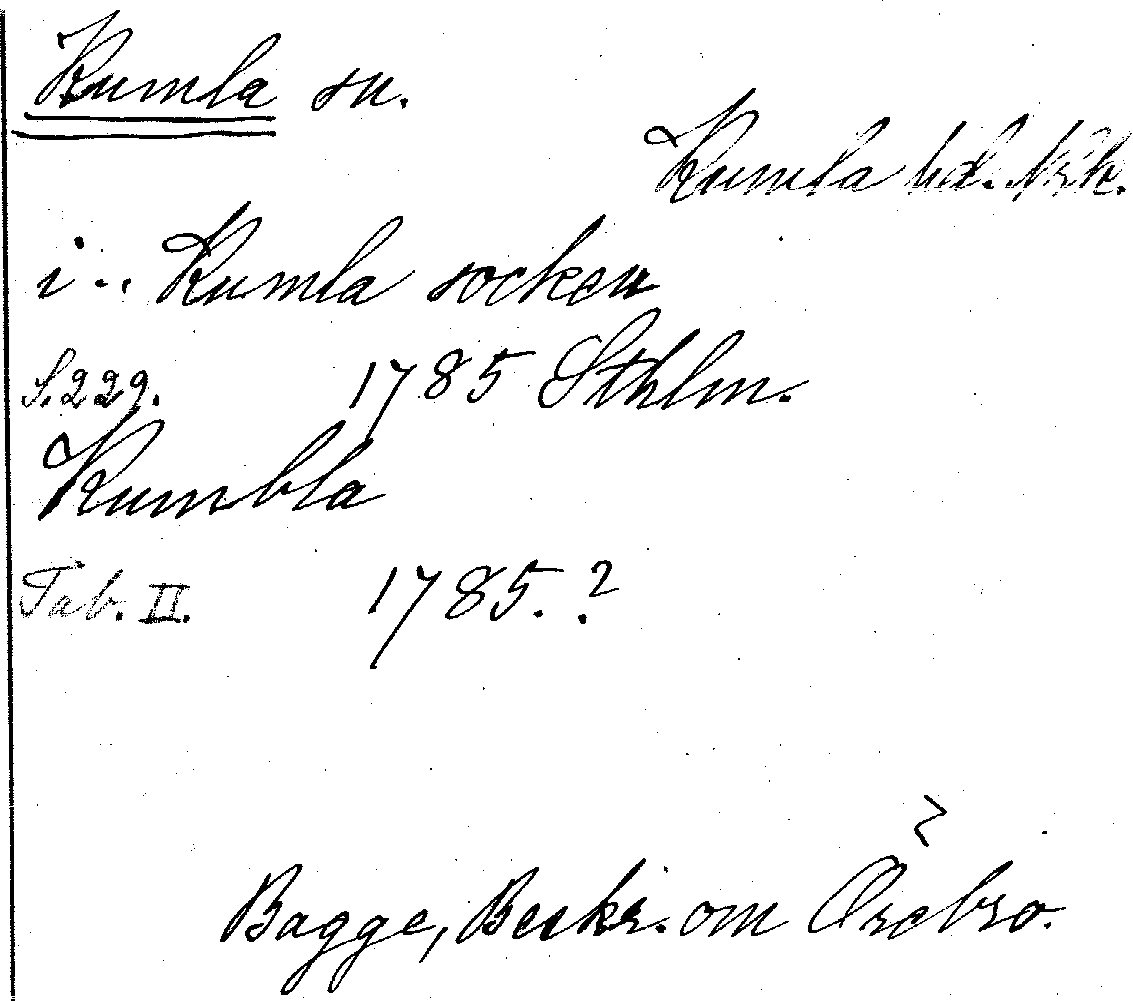 Kumla sn.
Kumla hd. Nrk.
i .. Kumla socken
S. 229. 1785 Sthlm.
Kumbla
Tab. II. 1785. ?
Bagge, Beskr. om Örebro.